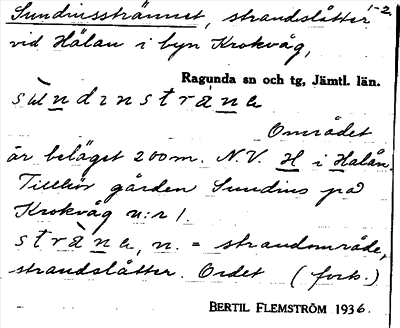 Sundinsstrännet, strandslåtter 1-2.
vid Hålan i byn Krokvåg,
Ragunda sn och tg, Jämtl. län.
Området
är beläget 200 m. N.V. H i Halån.
Tillhör gården Sundins på
Krokvåg n:r 1.
n. = strandområde,
strandslåtter. Ordet (forts.)
BERTIL FLEMSTRÖM 1936.